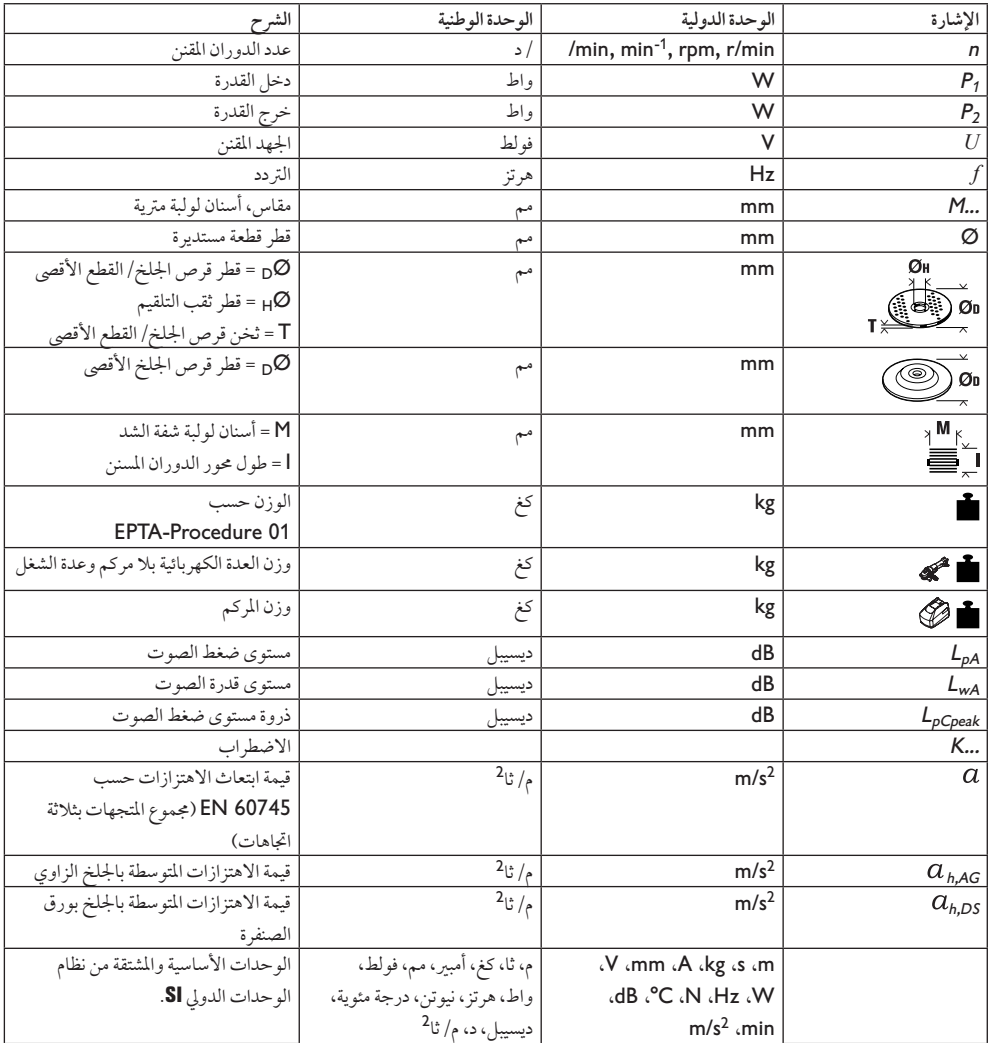 الإشارة الوحدة الدولية الوحدة الوطنية الشرح
n /min, min⁻¹, rpm, r/min /د عدد الدوران المقنن
P₁ W واط دخل القدرة
P₂ W واط خرج القدرة
U V فولط الجهد المقنن
f Hz هرتز التردد
M... mm مم مقاس، أسنان لولبة مترية
Ø mm مم قطر قطعة مستديرة
ØH ØD T mm مم ØD = قطر قرص الجلخ/ القطع الأقصى
ØH = قطر ثقب التلقيم
T = ثخن قرص الجلخ/ القطع الأقصى
ØD mm مم ØD = قطر قرص الجلخ الأقصى
M l mm مم M = أسنان لولبة شفة الشد
l = طول محور الدوران المسنن
kg كغ الوزن حسب
EPTA-Procedure 01
kg كغ وزن العدة الكهربائية بلا مركم وعدة الشغل
kg كغ وزن المركم
LpA dB ديسيبل مستوى ضغط الصوت
LwA dB ديسيبل مستوى قدرة الصوت
LpCpeak dB ديسيبل ذروة مستوى ضغط الصوت
K... الاضطراب
a m/s² م/ ثا² قيمة ابتعاث الاهتزازات حسب
EN 60745 (مجموع المتجهات بثلاثة
اتجاهات)
a h,AG m/s² م/ ثا² قيمة الاهتزازات المتوسطة بالجلخ الزاوي
a h,DS m/s² م/ ثا² قيمة الاهتزازات المتوسطة بالجلخ بورق
الصنفرة
m، s، kg، A، mm، V، م، ثا، كغ، أمبير، مم، فولط، الوحدات الأساسية والمشتقة من نظام
W، Hz، N، °C، dB، واط، هرتز، نيوتن، درجة مئوية، الوحدات الدولي SI.
min، m/s² ديسيبل، د، م/ ثا²